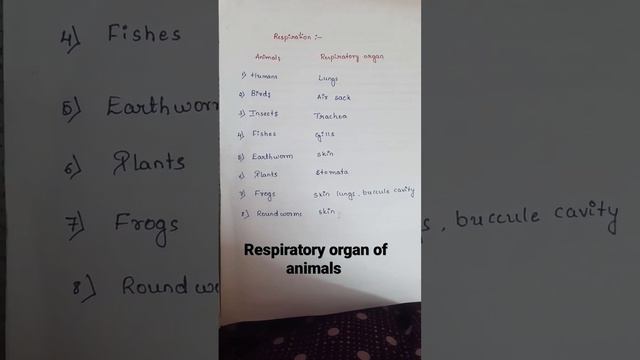 Respiration :-
Animals Respiratory organ
1) Humans Lungs
2) Birds Air sack
3) Insects Trachea
4) Fishes Gills
5) Earthworm Skin
6) Plants Stomata
7) Frogs skin lungs, buccule cavity
8) Roundworms skin
Respiratory organ of
animals
4) Fishes
5) Earthworm
6) Plants
7) Frogs
buccule cavity
8)